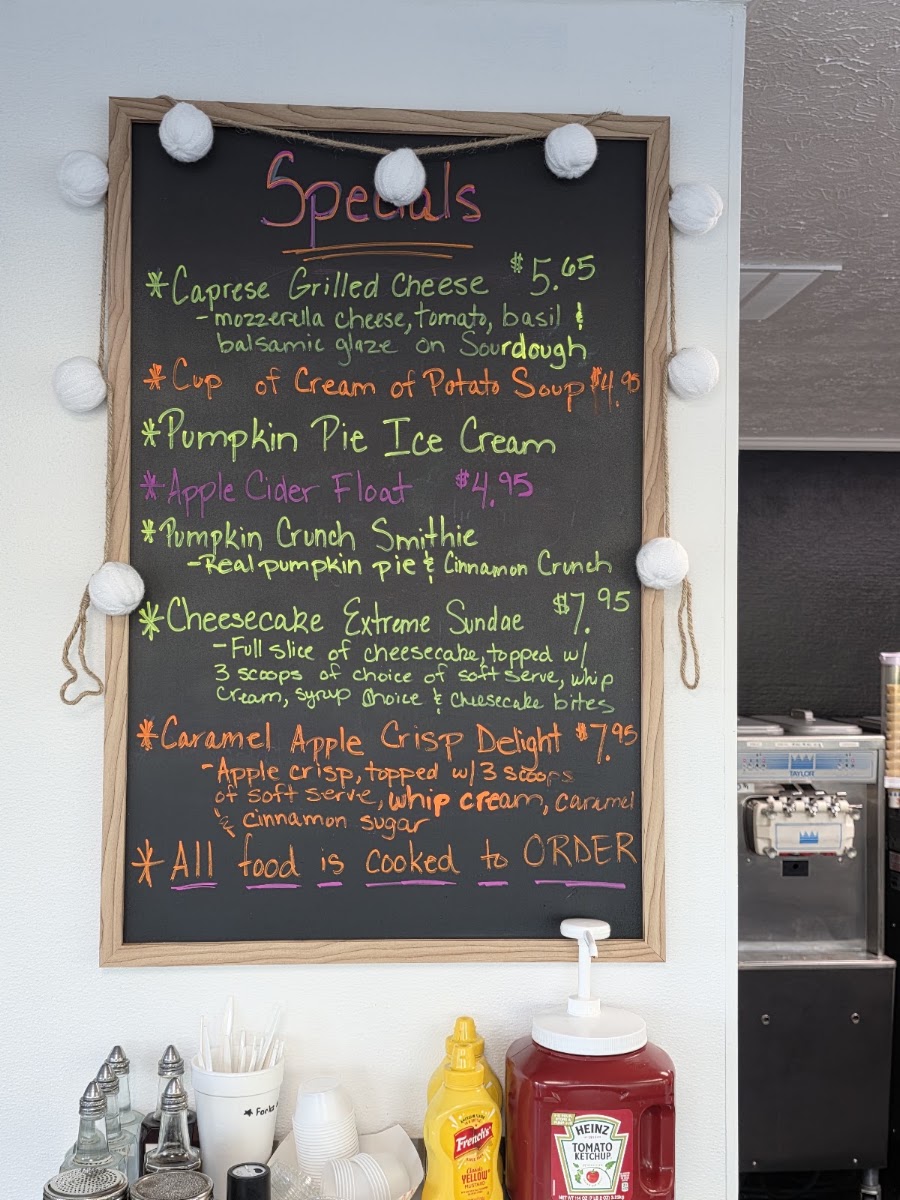 Specials
*Caprese Grilled Cheese $5.65
-mozzerella cheese, tomato, basil &
balsamic glaze on Sourdough
*Cup of Cream of Potato Soup $4.95
*Pumpkin Pie Ice Cream
*Apple Cider Float $4.95
*Pumpkin Crunch Smithie
-Real pumpkin pie & Cinnamon Crunch
*Cheesecake Extreme Sundae $7.95
-Full slice of cheesecake, topped w/
3 scoops of choice of soft serve, whip
cream, syrup choice & cheesecake bites
*Caramel Apple Crisp Delight $7.95
-Apple crisp, topped w/ 3 scoops
of soft serve, whip cream, caramel
& cinnamon sugar
*All food is cooked to ORDER
TAYLOR
Forks
French's
YELLOW
MUSTARD
HEINZ
TOMATO
KETCHUP